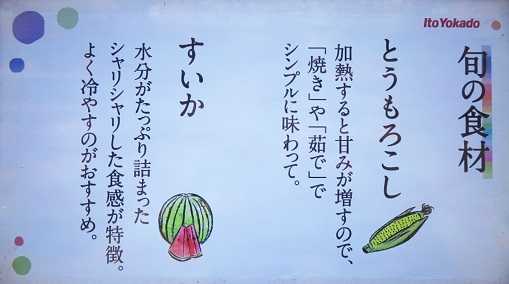 Ito Yokado
旬の食材
とうもろこし
加熱すると甘みが増すので、
「焼き」や「茹で」で
シンプルに味わって。
すいか
水分がたっぷり詰まった
シャリシャリした食感が特徴。
よく冷やすのがおすすめ。